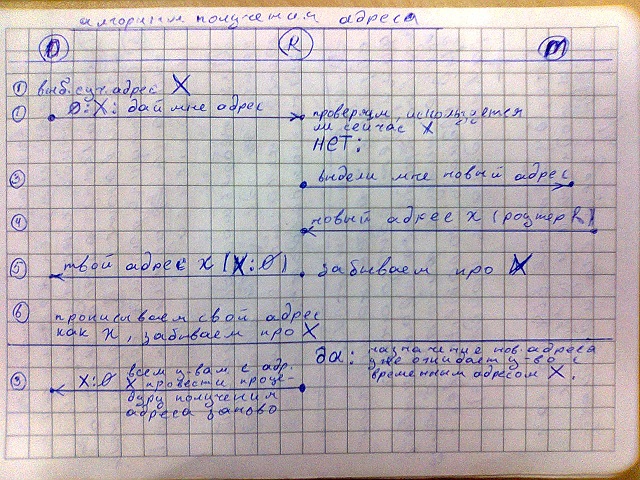 алгоритм получения адреса
D R M
① выб. случ. адрес X
② 0:X: дай мне адрес
проверяем, используется
ли сейчас X
НЕТ:
③ выдели мне новый адрес
④ новый адрес x (роутер R)
⑤ твой адрес x (X:0) забываем про X
⑥ прописываем свой адрес
как x, забываем про X
да: назначение нов. адреса
уже ожидает у-во с
временным адресом X.
③ X:0 всем у-вам с адр.
X провести проце-
дуру получения
адреса заново